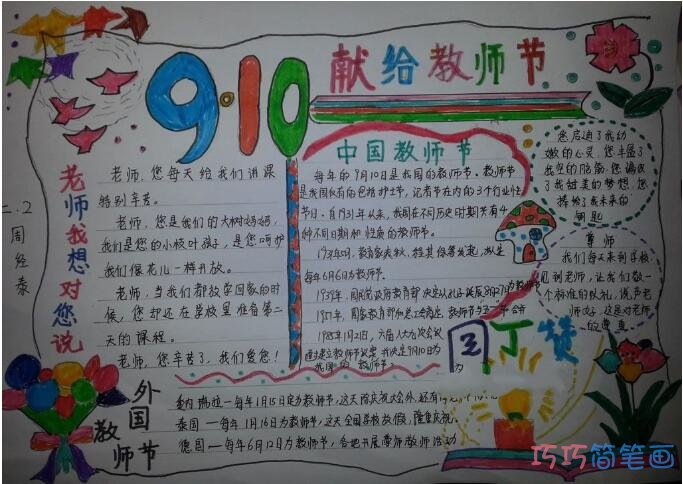 9·10
献给教师节
老师我想对您说
二.2
周经泰
老师,您每天给我们讲课
特别辛苦。
老师,您是我们的大树妈妈,
我们是您的小枝叶孩子,是您呵护
我们像花儿一样开放。
老师,当我们都放学回家的时
候,您却还在学校里准备第二
天的课程。
老师,您辛苦了,我们爱您!
中国教师节
每年的9月10日是我国的教师节。教师节
是我国仅有的包括护士节、记者节在内的3个行业性
节日。自1931年以来,我国在不同历史时期共有4
种不同日期和性质的教师节。
每年6月6日为教师节。
1939年,国民党政府教育部决定从孔子诞辰8月27日为教师节
1985年1月21日,六届人大九次会议
我国的教师节
您启迪了我幼
嫩的心灵,您丰盈了
我空的脑袋,您编织
了我甜美的梦想,您
给了我未来的
钥匙
尊师
我们每天来到学校
见到老师,让我们敬一
个标准的队礼,说声老
师好,这是对老师
的尊重
园丁赞
外国教师节
委内瑞拉——每年1月15日定为教师节,这天除庆祝大会外,还有
泰国——每年1月16日为教师节,这天全国学校放假,隆重庆祝。
德国——每年6月12日为教师节,各地开展尊师教师活动
巧巧简笔画